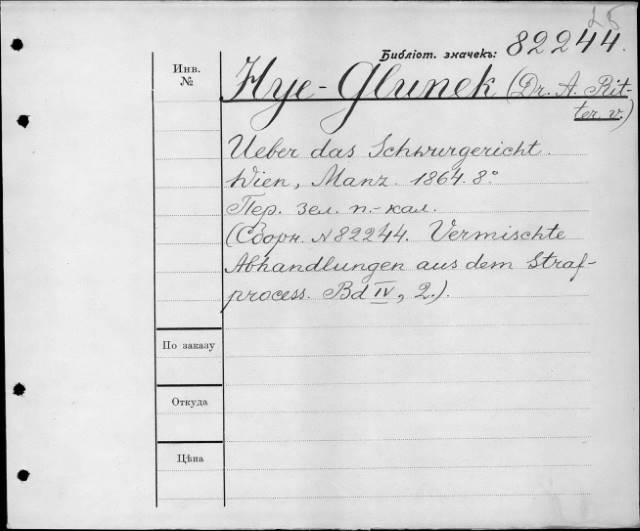 25
Библіот. значекъ: 82244.
Инв. №
Hye-Glunek (Dr. A. Rit-
ter. v.)
Ueber das Schwurgericht.
Wien, Manz. 1864. 8°
Пер. зел. п.-кал.
(Сборн. N 82244. Vermischte
Abhandlungen aus dem Straf-
process. Bd IV, 2.).
По заказу
Откуда
Цѣна